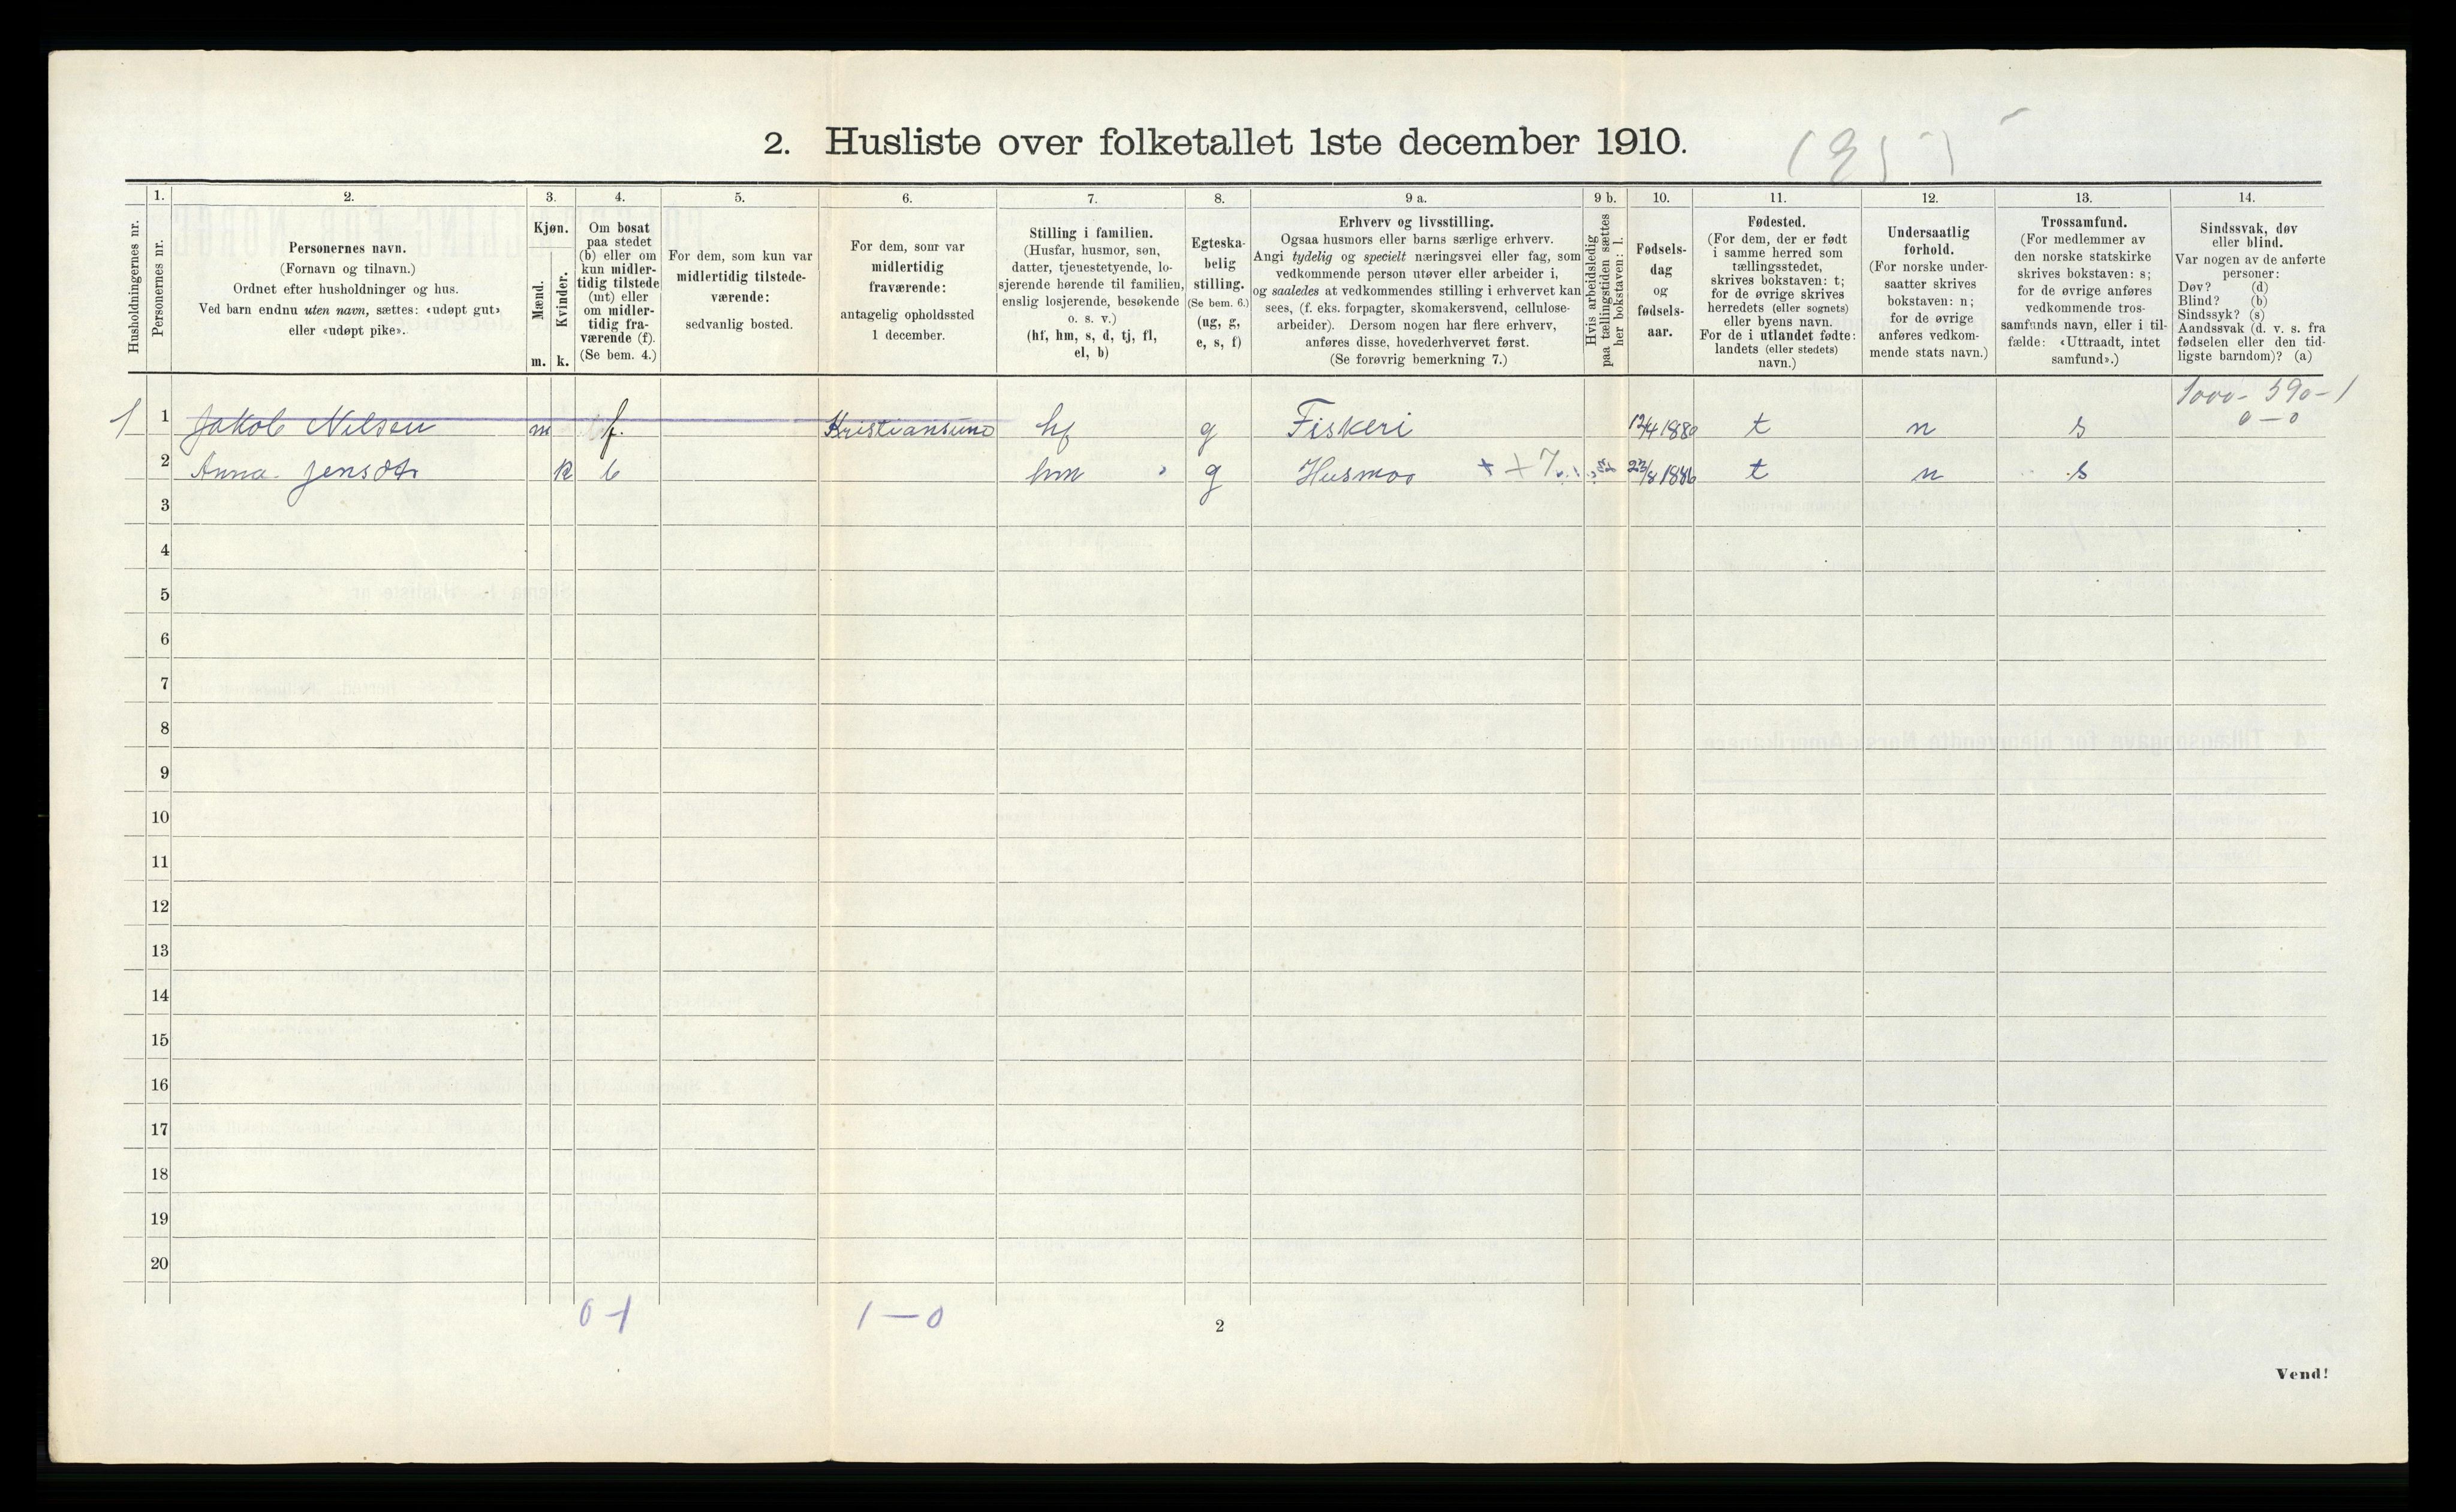 2. Husliste over folketallet 1ste december 1910.
Husholdningernes nr.
1.
Personernes nr.
2.
Personernes navn.
(Fornavn og tilnavn.)
Ordnet efter husholdninger og hus.
Ved barn endnu uten navn, sættes: «udøpt gut»
eller «udøpt pike».
3.
Kjøn.
Mænd.
Kvinder.
m. k.
4.
Om bosat
paa stedet
(b) eller om
kun midler-
tidig tilstede
(mt) eller
om midler-
tidig fra-
værende (f).
(Se bem. 4.)
5.
For dem, som kun var
midlertidig tilstede-
værende:
sedvanlig bosted.
6.
For dem, som var
midlertidig
fraværende:
antagelig opholdssted
1 december.
7.
Stilling i familien.
(Husfar, husmor, søn,
datter, tjenestetyende, lo-
sjerende hørende til familien,
enslig losjerende, besøkende
o. s. v.)
(hf, hm, s, d, tj, fl,
el, b)
8.
Egteska-
belig
stilling.
(Se bem. 6.)
(ug, g,
e, s, f)
9 a.
Erhverv og livsstilling.
Ogsaa husmors eller barns særlige erhverv.
Angi tydelig og specielt næringsvei eller fag, som
vedkommende person utøver eller arbeider i,
og saaledes at vedkommendes stilling i erhvervet kan
sees, (f. eks. forpagter, skomakersvend, cellulose-
arbeider). Dersom nogen har flere erhverv,
anføres disse, hovederhvervet først.
(Se forøvrig bemerkning 7.)
9 b.
Hvis arbeidsledig
paa tællingstiden sættes
her bokstaven: l.
10.
Fødsels-
dag
og
fødsels-
aar.
11.
Fødested.
(For dem, der er født
i samme herred som
tællingsstedet,
skrives bokstaven: t;
for de øvrige skrives
herredets (eller sognets)
eller byens navn.
For de i utlandet fødte:
landets (eller stedets)
navn.)
12.
Undersaatlig
forhold.
(For norske under-
saatter skrives
bokstaven: n;
for de øvrige
anføres vedkom-
mende stats navn.)
13.
Trossamfund.
(For medlemmer av
den norske statskirke
skrives bokstaven: s;
for de øvrige anføres
vedkommende tros-
samfunds navn, eller i til-
fælde: «Uttraadt, intet
samfund».)
14.
Sindssvak, døv
eller blind.
Var nogen av de anførte
personer:
Døv? (d)
Blind? (b)
Sindssyk? (s)
Aandssvak (d. v. s. fra
fødselen eller den tid-
ligste barndom)? (a)
1000 - 390 - 1
0 - 0
1 1 Jakob Nilsen m f. Kristiansund hf g Fiskeri 12/4 1880 t n s
2 Anna Jensdtr k b hm g Husmor 23/8 1886 t n s
3
4
5
6
7
8
9
10
11
12
13
14
15
16
17
18
19
20
0-1 1-0
2
Vend!